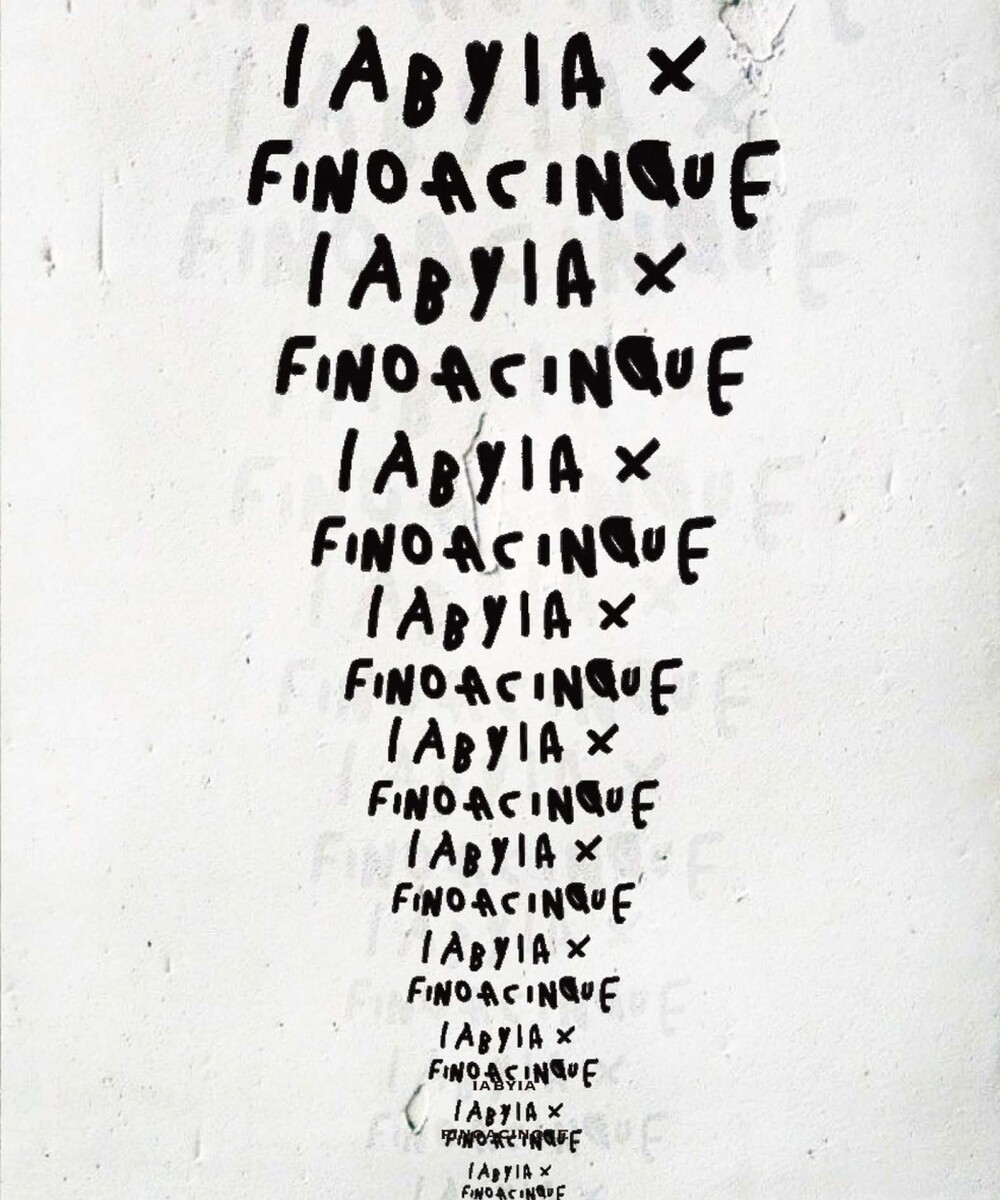 IABYIA X
FINOACINQUE
IABYIA X
FINOACINQUE
IABYIA X
FINOACINQUE
IABYIA X
FINOACINQUE
IABYIA X
FINOACINQUE
IABYIA X
FINOACINQUE
IABYIA X
FINOACINQUE
IABYIA X
FINOACINQUE
IABYIA
IABYIA X
FINOACINQUE
FINOACINQUE
IABYIA X
FINOACINQUE